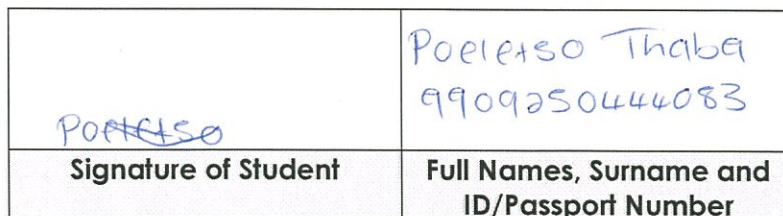 Poeletso Thaba
9909250444083
Poeletso
Signature of Student
Full Names, Surname and
ID/Passport Number